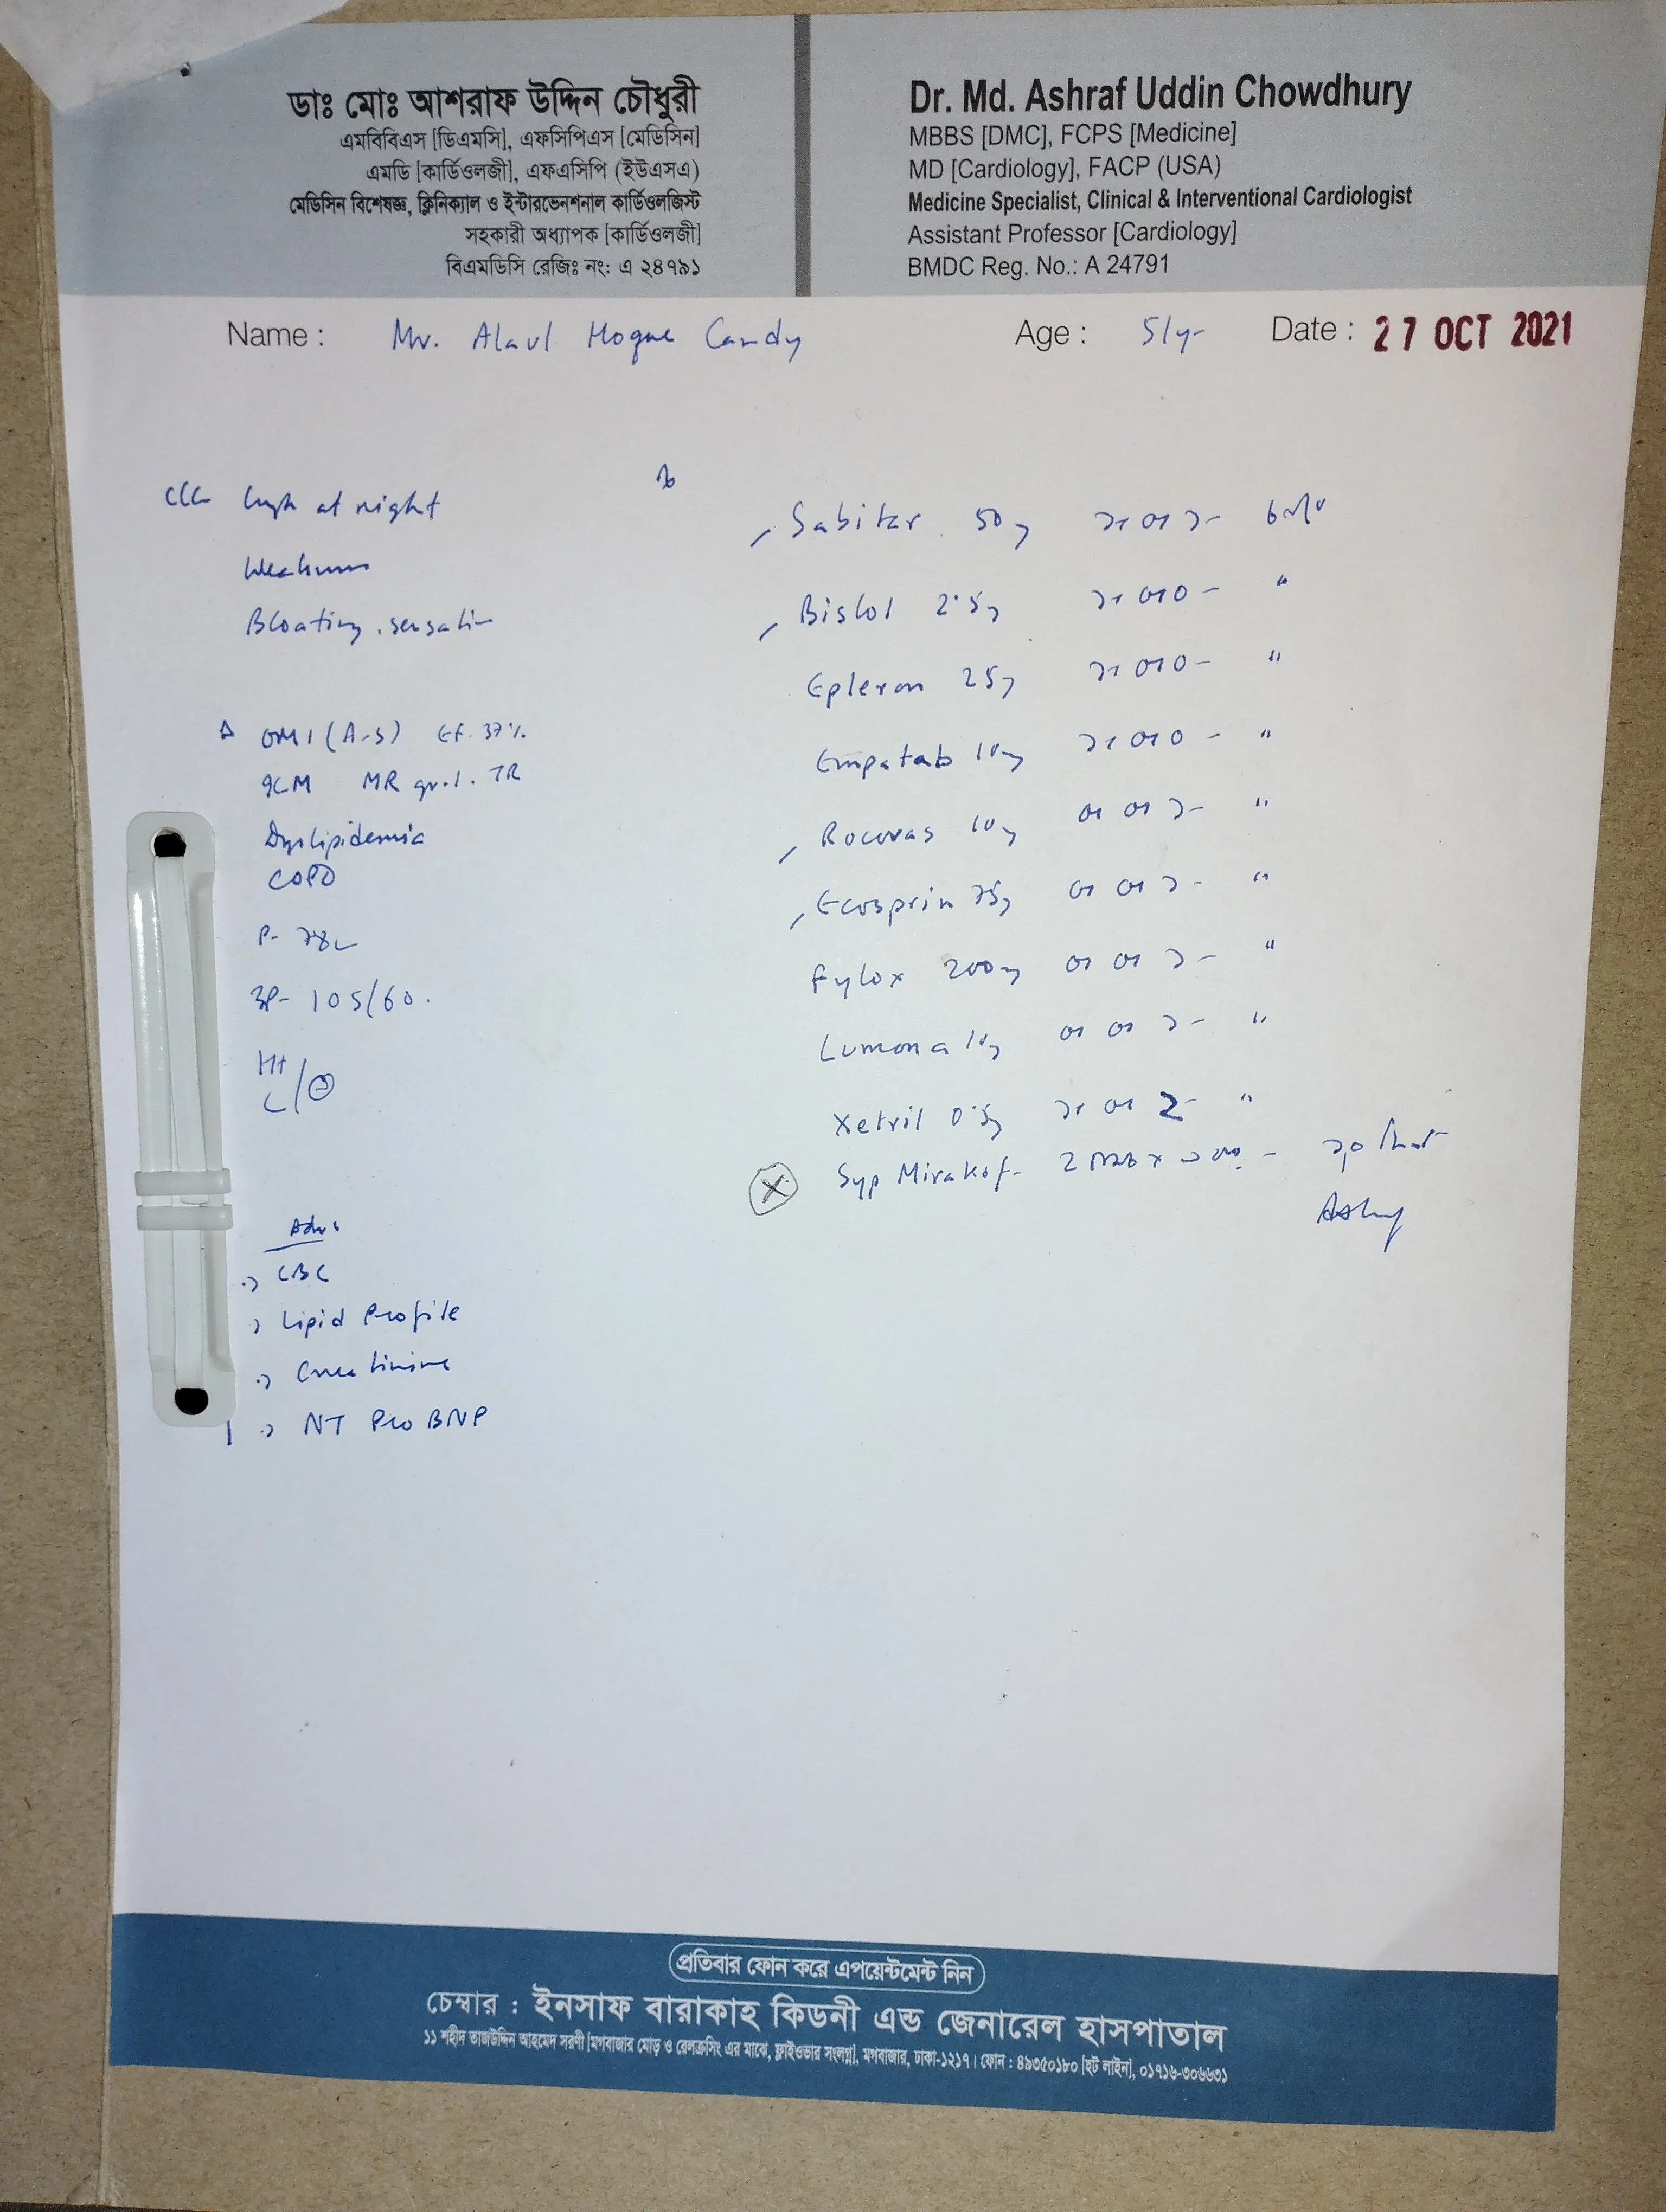 ডাঃ মোঃ আশরাফ উদ্দিন চৌধুরী
এমবিবিএস [ডিএমসি], এফসিপিএস [মেডিসিন]
এমডি [কার্ডিওলজী], এফএসিপি (ইউএসএ)
মেডিসিন বিশেষজ্ঞ, ক্লিনিক্যাল ও ইন্টারভেনশনাল কার্ডিওলজিস্ট
সহকারী অধ্যাপক [কার্ডিওলজী]
বিএমডিসি রেজিঃ নং: এ ২৪৭৯১
Dr. Md. Ashraf Uddin Chowdhury
MBBS [DMC], FCPS [Medicine]
MD [Cardiology], FACP (USA)
Medicine Specialist, Clinical & Interventional Cardiologist
Assistant Professor [Cardiology]
BMDC Reg. No.: A 24791
Name : Mr. Alaul Hoque
Age : 51y- Date : 27 OCT 2021
at night
Weakness
Bloating sensation
OMI (A-S) EF. 37%
ICM MR gr.1. TR
Dyslipidemia
COPD
P- 78
BP- 105/60.
Adv:
CBC
Lipid Profile
Creatinine
NT Pro BNP
Sabitar 50 ১+০+১-
Bislol 2.5 ১+০+০ - "
Epleron 25 ১+০+০ - "
Empatab 10 ১+০+০ - "
Rocovas 10 ০+০+১- "
Ecosprin 75 ০+০+১- "
Fylox 200 ০+০+১- "
Lumona 10 ০+০+১- "
Xetril 0.5
Syp Mirakof-
প্রতিবার ফোন করে এপয়েন্টমেন্ট নিন
চেম্বার : ইনসাফ বারাকাহ কিডনী এন্ড জেনারেল হাসপাতাল
১১ শহীদ তাজউদ্দিন আহমেদ সরণী [মগবাজার মোড় ও রেলক্রসিং এর মাঝে, ফ্লাইওভার সংলগ্ন], মগবাজার, ঢাকা-১২১৭। ফোন : ৪৯৩৫০১৮০ [হট লাইন], ০১৭১৬-৩০৬৬৩১